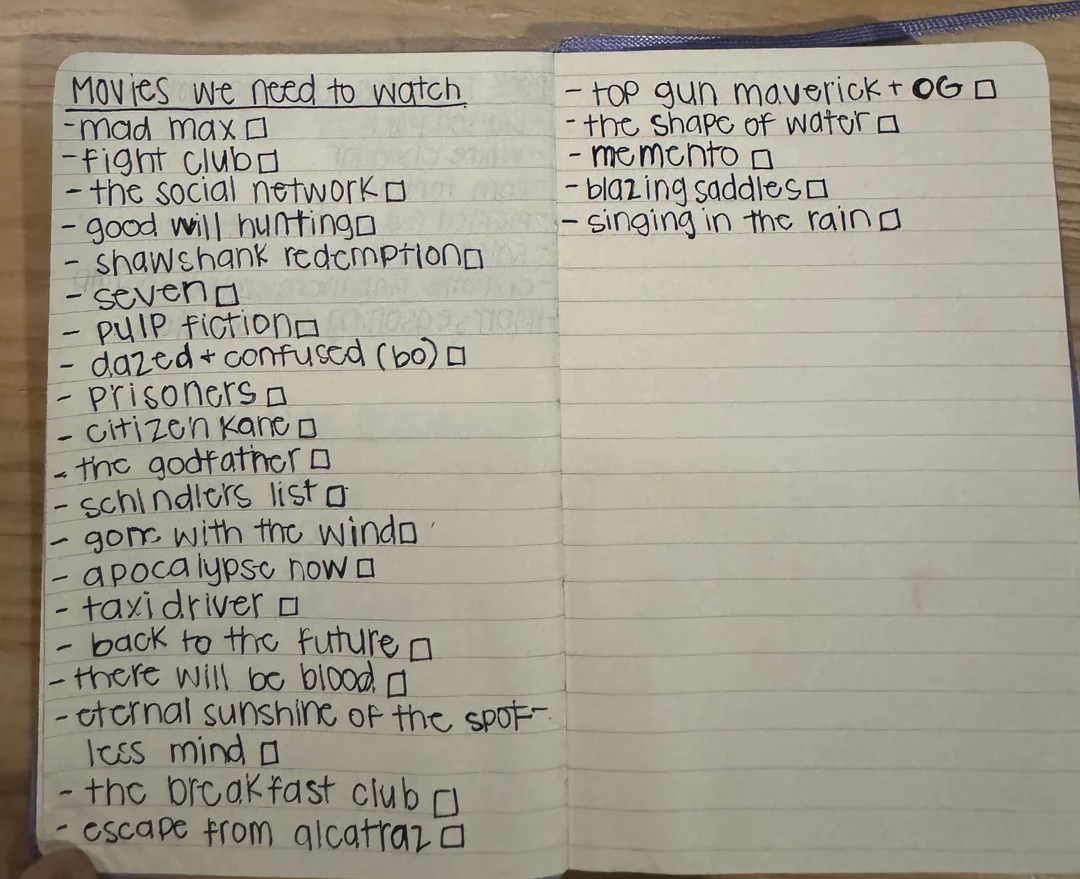 Movies we need to watch
- mad max □
- fight club □
- the social network □
- good will hunting □
- shawshank redemption □
- seven □
- pulp fiction □
- dazed + confused (bo) □
- prisoners □
- citizen kane □
- the godfather □
- schindlers list □
- gone with the wind □
- apocalypse now □
- taxi driver □
- back to the future □
- there will be blood □
- eternal sunshine of the spot-
less mind □
- the breakfast club □
- escape from alcatraz □
- top gun maverick + OG □
- the shape of water □
- memento □
- blazing saddles □
- singing in the rain □